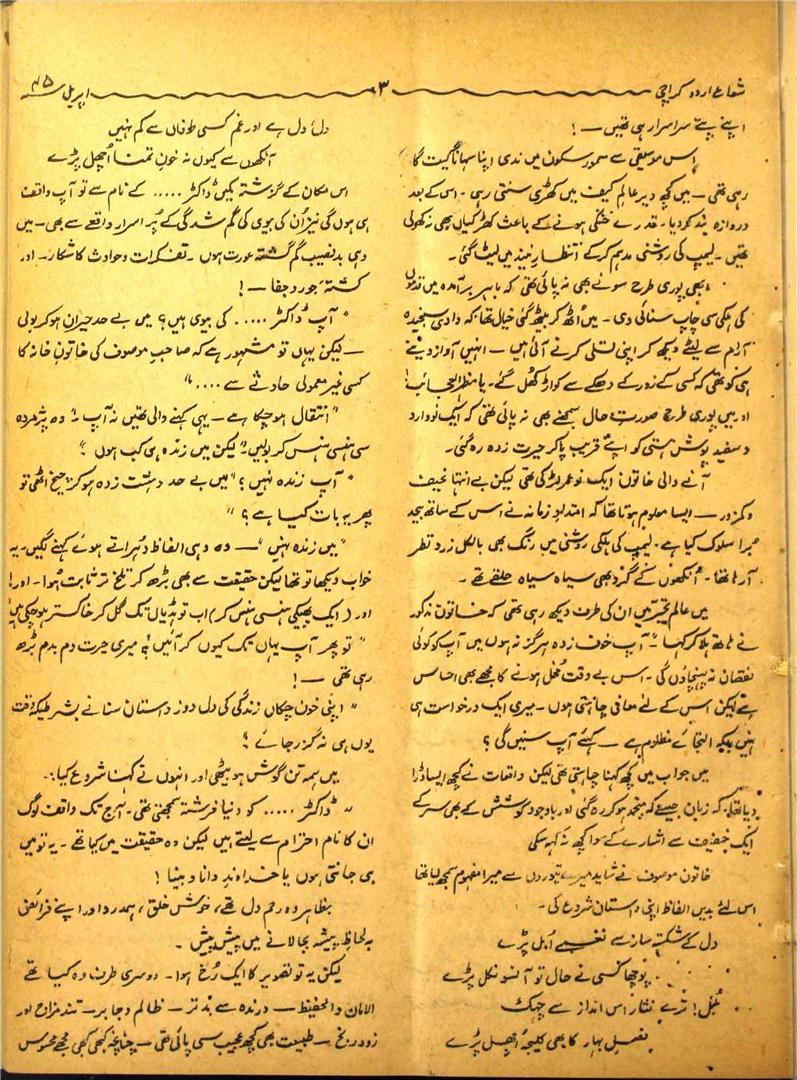 شعاع اردو کراچی ۳ اپریل ۴۵ء
اپنے پتے سرا سرا رہی تھیں — !
اس موسیقی سے معمور سکون میں ندی اپنا سہانا گیت گا
رہی تھی — میں کچھ دیر عالمِ کیف میں کھڑی سنتی رہی ۔ اس کے بعد
دروازہ بند کر دیا ۔ قدرے خنکی ہونے کے باعث کھڑکیاں بھی نہ کھولی
تھیں ۔ لیمپ کی روشنی مدہم کر کے انتظارِ نیند میں لیٹ گئی ۔
ابھی پوری طرح سونے بھی نہ پائی تھی کہ باہر برآمدہ میں قدموں
کی ہلکی سی چاپ سنائی دی ۔ میں اُٹھ کر بیٹھ گئی خیال تھا کہ دادی سنجیدہ
آرام سے لیٹے دیکھ کر اپنی تسلی کرنے آئی ہیں — انہیں آواز دینے
ہی کو تھی کہ کسی کے زور کے دھکے سے کواڑ کھل گئے ۔ یا مظہر العجائب !
اور میں پوری طرح صورتِ حال سمجھنے بھی نہ پائی تھی کہ ایک نووارد
و سفید پوش ہستی کو اپنے قریب پا کر حیرت زدہ رہ گئی ۔
آنے والی خاتون ایک نوعمر لڑکی تھی لیکن بے انتہا نحیف
و کمزور — ایسا معلوم ہوتا تھا کہ امتدادِ زمانہ نے اس کے ساتھ بیحد
بُرا سلوک کیا ہے ۔ لیمپ کی ہلکی روشنی میں رنگ بھی بالکل زرد نظر
آ رہا تھا ۔ آنکھوں کے گرد بھی سیاہ سیاہ حلقے تھے ۔
میں عالمِ تحیّر میں ان کی طرف دیکھ رہی تھی کہ خاتون مذکور
نے ہاتھ ہلا کر کہا " ۔ آپ خوف زدہ ہرگز نہ ہوں میں آپ کو کوئی
نقصان نہ پہنچاؤں گی ۔ اس بے وقت مُخل ہونے کا مجھے بھی احساس
ہے لیکن اس کے لئے معافی چاہتی ہوں ۔ میری ایک درخواست ہی
نہیں بلکہ التجائے مظلوم ہے — کہئے آپ سنیں گی ؟
میں جواب میں کچھ کہنا چاہتی تھی لیکن واقعات نے کچھ ایسا ڈرا
دیا تھا کہ زبان جیسے کہ منجمد ہو کر رہ گئی اور باوجود کوشش کے بھی سر کے
ایک خفیف سے اشارے کے سوا کچھ نہ کہہ سکی
خاتون موصوف نے شاید میرے تیوروں سے میرا مفہوم سمجھ لیا تھا
اس لئے بدیں الفاظ اپنی داستان شروع کی ۔
دل کے شکستہ ساز سے نغمے اُبل پڑے
پوچھا کسی نے حال تو آنسو نکل پڑے
بُلبل ! ترے نثار اس انداز سے چہک
فصلِ بہار کا بھی کلیجہ اُچھل پڑے
دل دل ہے اور غم کسی طوفاں سے کم نہیں
آنکھوں سے کیوں نہ خونِ تمنا اُچھل پڑے
اس مکان کے گزشتہ مکیں ڈاکٹر ..... کے نام سے تو آپ واقف
ہی ہوں گی نیز اُن کی بیوی کی گم شدگی کے پُر اسرار واقعے سے بھی ۔ میں
وہی بدنصیب گم گشتہ عورت ہوں ۔ تفکرات و حوادث کا شکار ۔ اور
کشتۂ جور و جفا — !
" آپ ڈاکٹر ..... کی بیوی ہیں ؟ میں بے حد حیران ہو کر بولی
— لیکن یہاں تو مشہور ہے کہ صاحبِ موصوف کی خاتونِ خانہ کا
کسی غیر معمولی حادثے سے .... "
" انتقال ہو چکا ہے — یہی کہنے والی تھیں نہ آپ " وہ پژمردہ
سی ہنسی ہنس کر بولیں " لیکن میں زندہ ہی کب ہوں ؟
" آپ زندہ نہیں ؟ " میں بے حد دہشت زدہ ہو کر چیخ اٹھی تو
پھر یہ بات کیا ہے ؟ "
" میں زندہ نہیں " — وہ وہی الفاظ دُہراتے ہوئے کہنے لگیں ۔ یہ
خواب دیکھا تو تھا لیکن حقیقت سے بھی بڑھ کر تلخ تر ثابت ہُوا ۔ اور !
اور ( ایک پھیکی ہنسی ہنس کر ) اب تو ہڈیاں تک گل کر خاکستر ہو چکی ہیں
" تو پھر آپ یہاں تک کیوں کر آئیں ؟ میری حیرت دم بدم بڑھ
رہی تھی — !
" اپنی خون چکاں زندگی کی دل دوز داستان سنانے بشرطیکہ وقت
یوں ہی نہ گزر جائے ؟
میں ہمہ تن گوش ہو بیٹھی اور انہوں نے کہنا شروع کیا ۔
" ڈاکٹر ..... کو دنیا فرشتہ سمجھتی تھی ۔ آج تک واقف لوگ
ان کا نام احترام سے لیتے ہیں لیکن وہ حقیقت میں کیا تھے ۔ یہ تو میں
ہی جانتی ہوں یا خداوندِ دانا و بینا !
بظاہر وہ رحم دل تھے ، خوش خلق ، ہمدرد اور اپنے فرائض
بہ لحاظِ پیشہ بجا لانے میں پیش پیش ۔
لیکن یہ تو تصویر کا ایک رُخ ہوا ۔ دوسری طرف وہ کیا تھے
الامان والحفیظ — درندہ سے بدتر — ظالم و جابر — تند مزاج اور
زود رنج — طبیعت بھی کچھ عجیب سی پائی تھی — چنانچہ کبھی کبھی مجھے محسوس